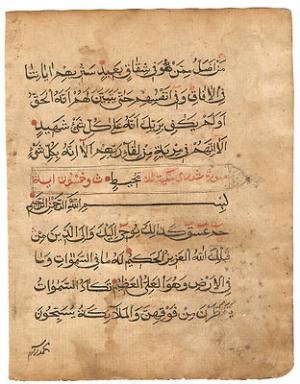 مَن اضل ممن هو في شقاق بعيد سنريهم اياتنا
في الافاق وفي انفسهم حتى يتبين لهم انه الحق
اولم يكف بربك انه على كل شئ شهيد
الا انهم في مرية من لقاء ربهم الا انه بكل شئ
محيط
بسم الله الرحمن الرحيم
حم عسق كذلك يوحي اليك والى الذين من
قبلك الله العزيز الحكيم له ما في السموات وما
في الارض وهو العلي العظيم تكاد السموات
يتفطرن من فوقهن والملائكة يسبحون